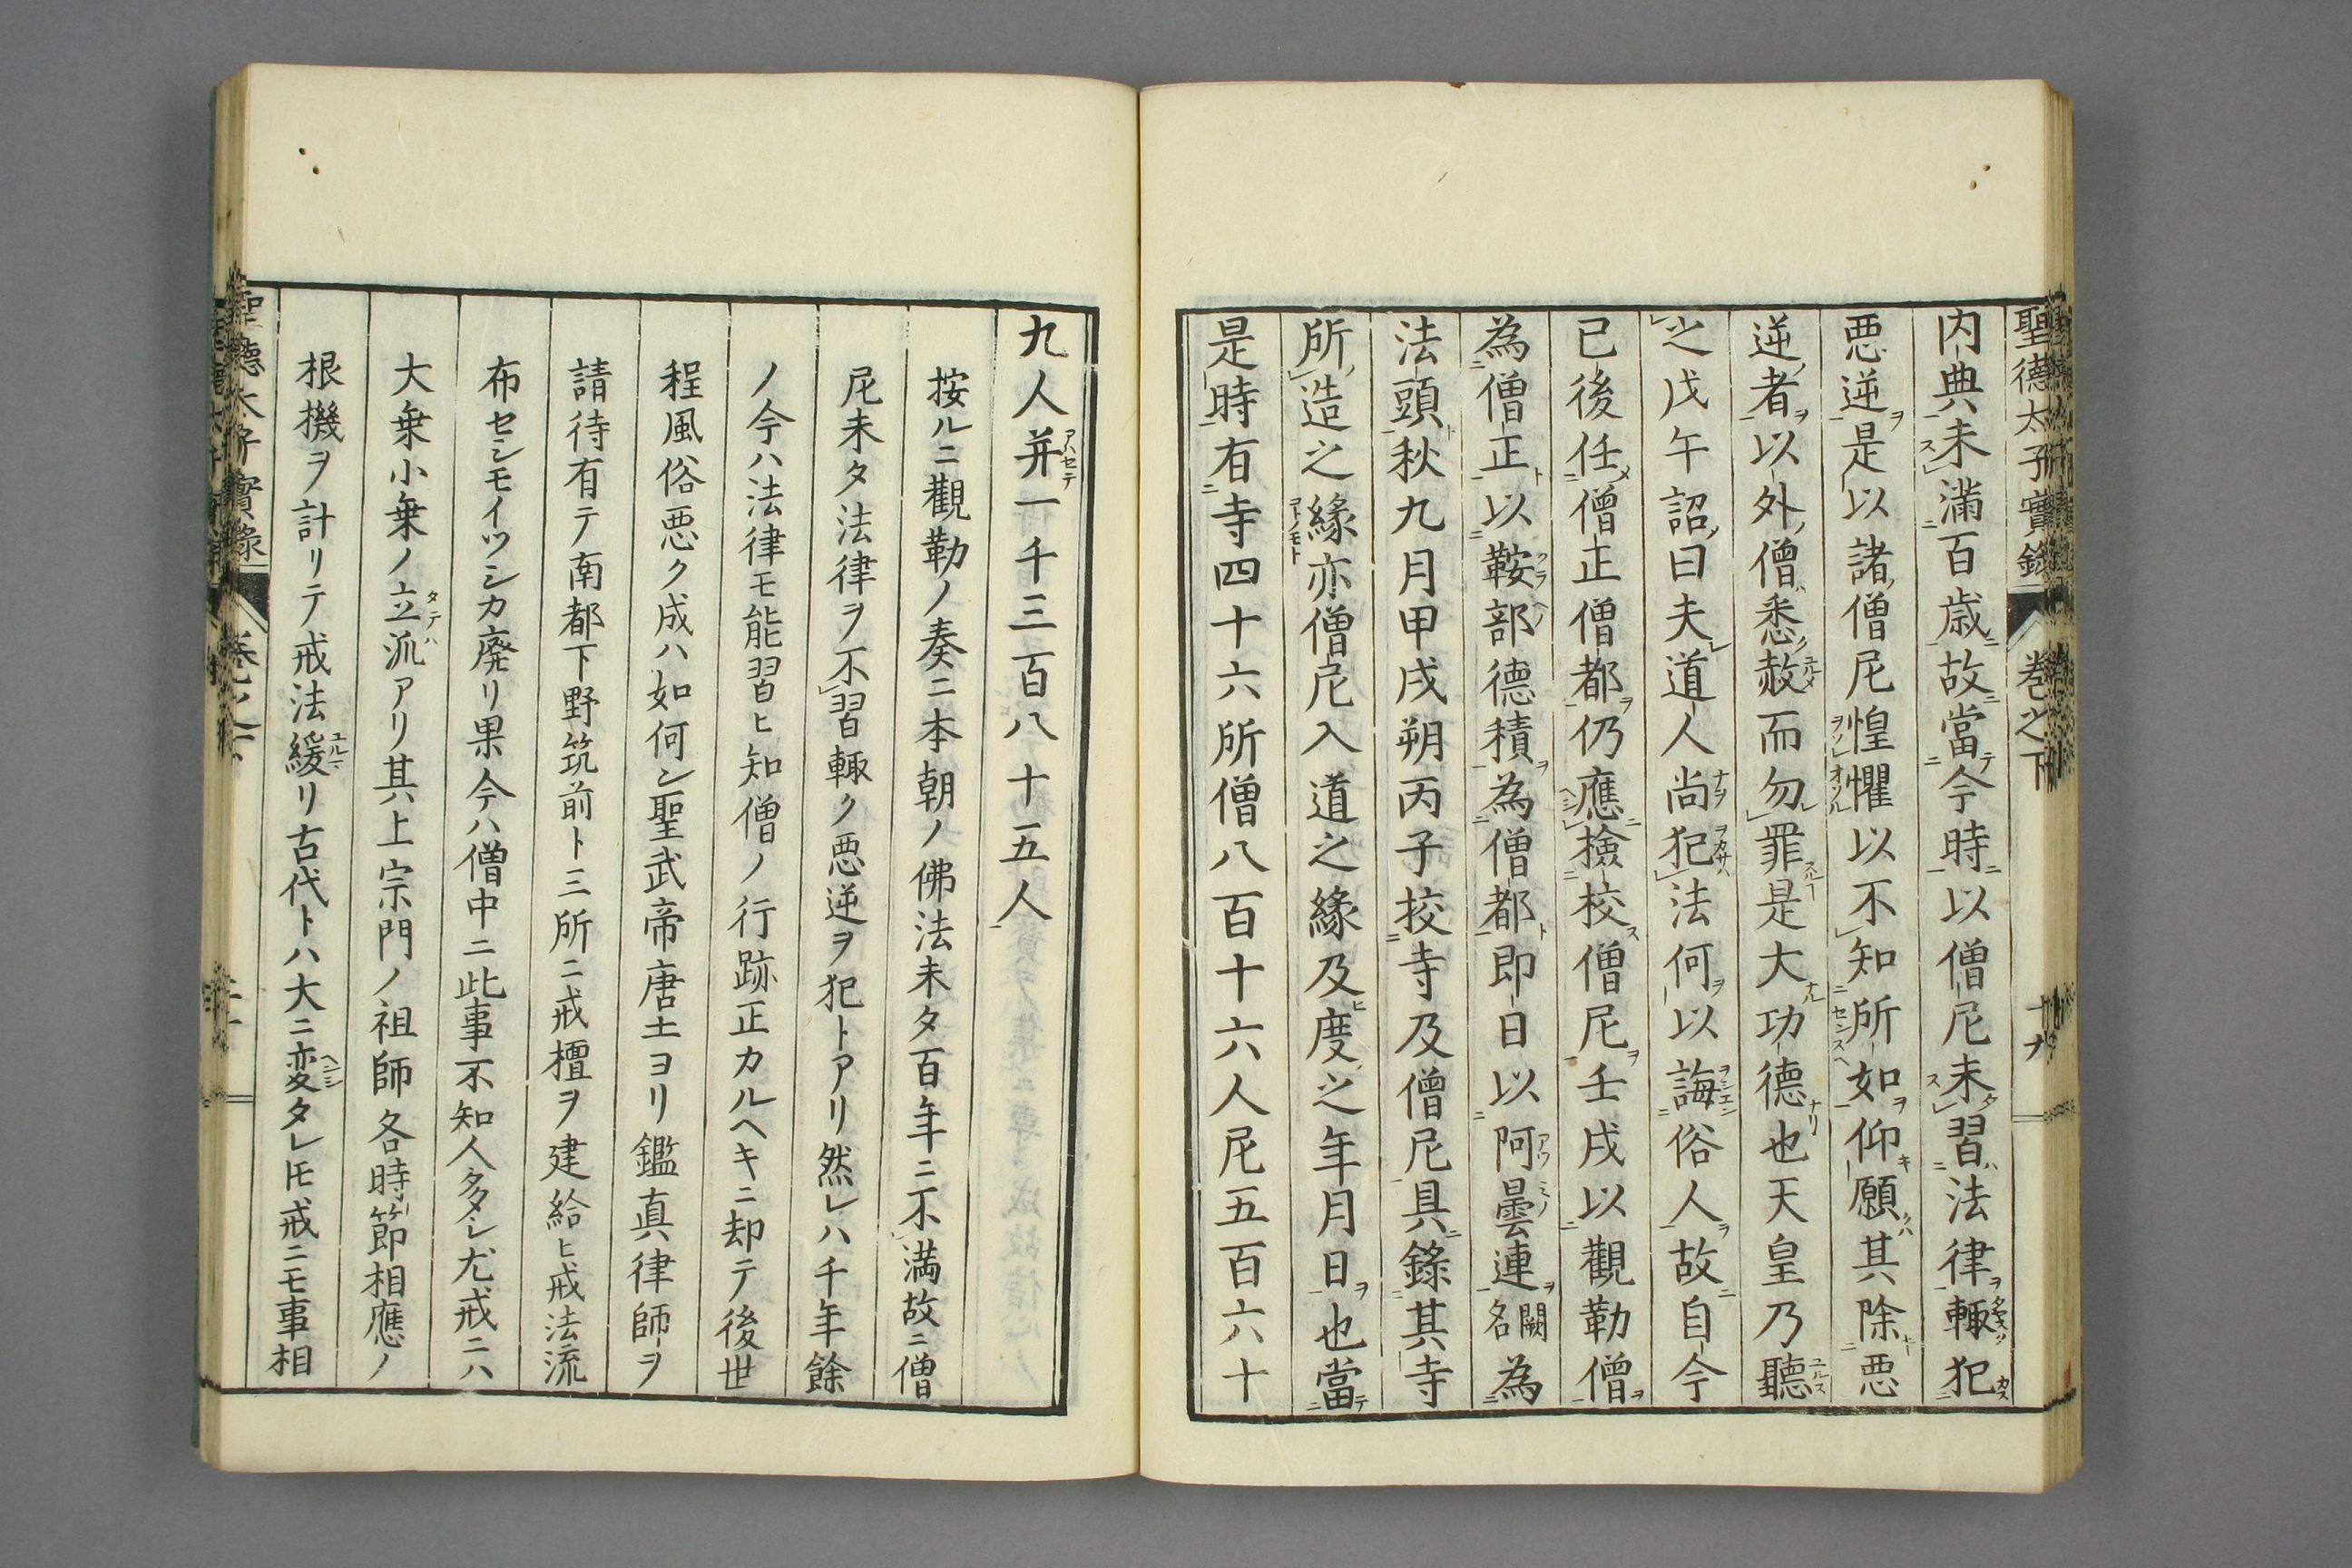 聖德太子實錄 卷之下 十九
内典未滿百歳故當今時以僧尼未習法律輙犯
悪逆是以諸僧尼惶懼以不知所如仰願其除悪
逆者以外僧悉赦而勿罪是大功德也天皇乃聽
之戊午詔曰夫道人尚犯法何以誨俗人故自今
已後任僧正僧都仍應撿校僧尼壬戌以觀勒僧
為僧正以鞍部德積為僧都即日以阿曇連闕名為
法頭秋九月甲戌朔丙子挍寺及僧尼具錄其寺
所造之緣亦僧尼入道之緣及度之年月日也當
是時有寺四十六所僧八百十六人尼五百六十
九人并一千三百八十五人
按ルニ觀勒ノ奏ニ本朝ノ佛法未タ百年ニ不満故ニ僧
尼未タ法律ヲ不習輙ク悪逆ヲ犯トアリ然レハ千年餘
ノ今ハ法律モ能習ヒ知僧ノ行跡正カルヘキニ却テ後世
程風俗悪ク成ハ如何ン聖武帝唐土ヨリ鑑真律師ヲ
請待有テ南都下野筑前ト三所ニ戒檀ヲ建給ヒ戒法流
布セシモイツシカ廃リ果今ハ僧中ニ此事不知人多タシ尤戒ニハ
大乗小乗ノ立派アリ其上宗門ノ祖師各時節相應ノ
根機ヲ計リテ戒法緩リ古代トハ大ニ変タレ𪜈戒ニモ事相
聖德太子實錄